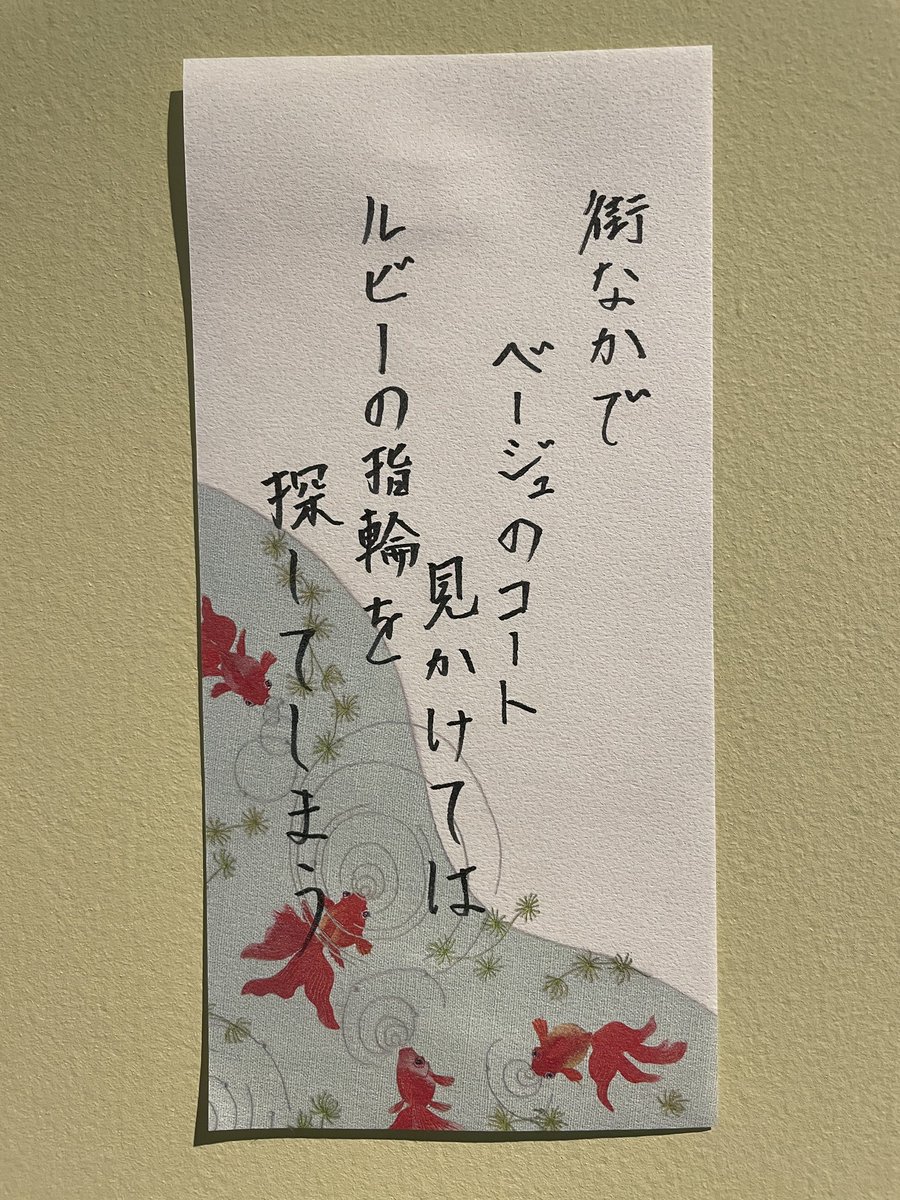 街なかで
ベージュのコート
見かけては
ルビーの指輪を
探してしまう